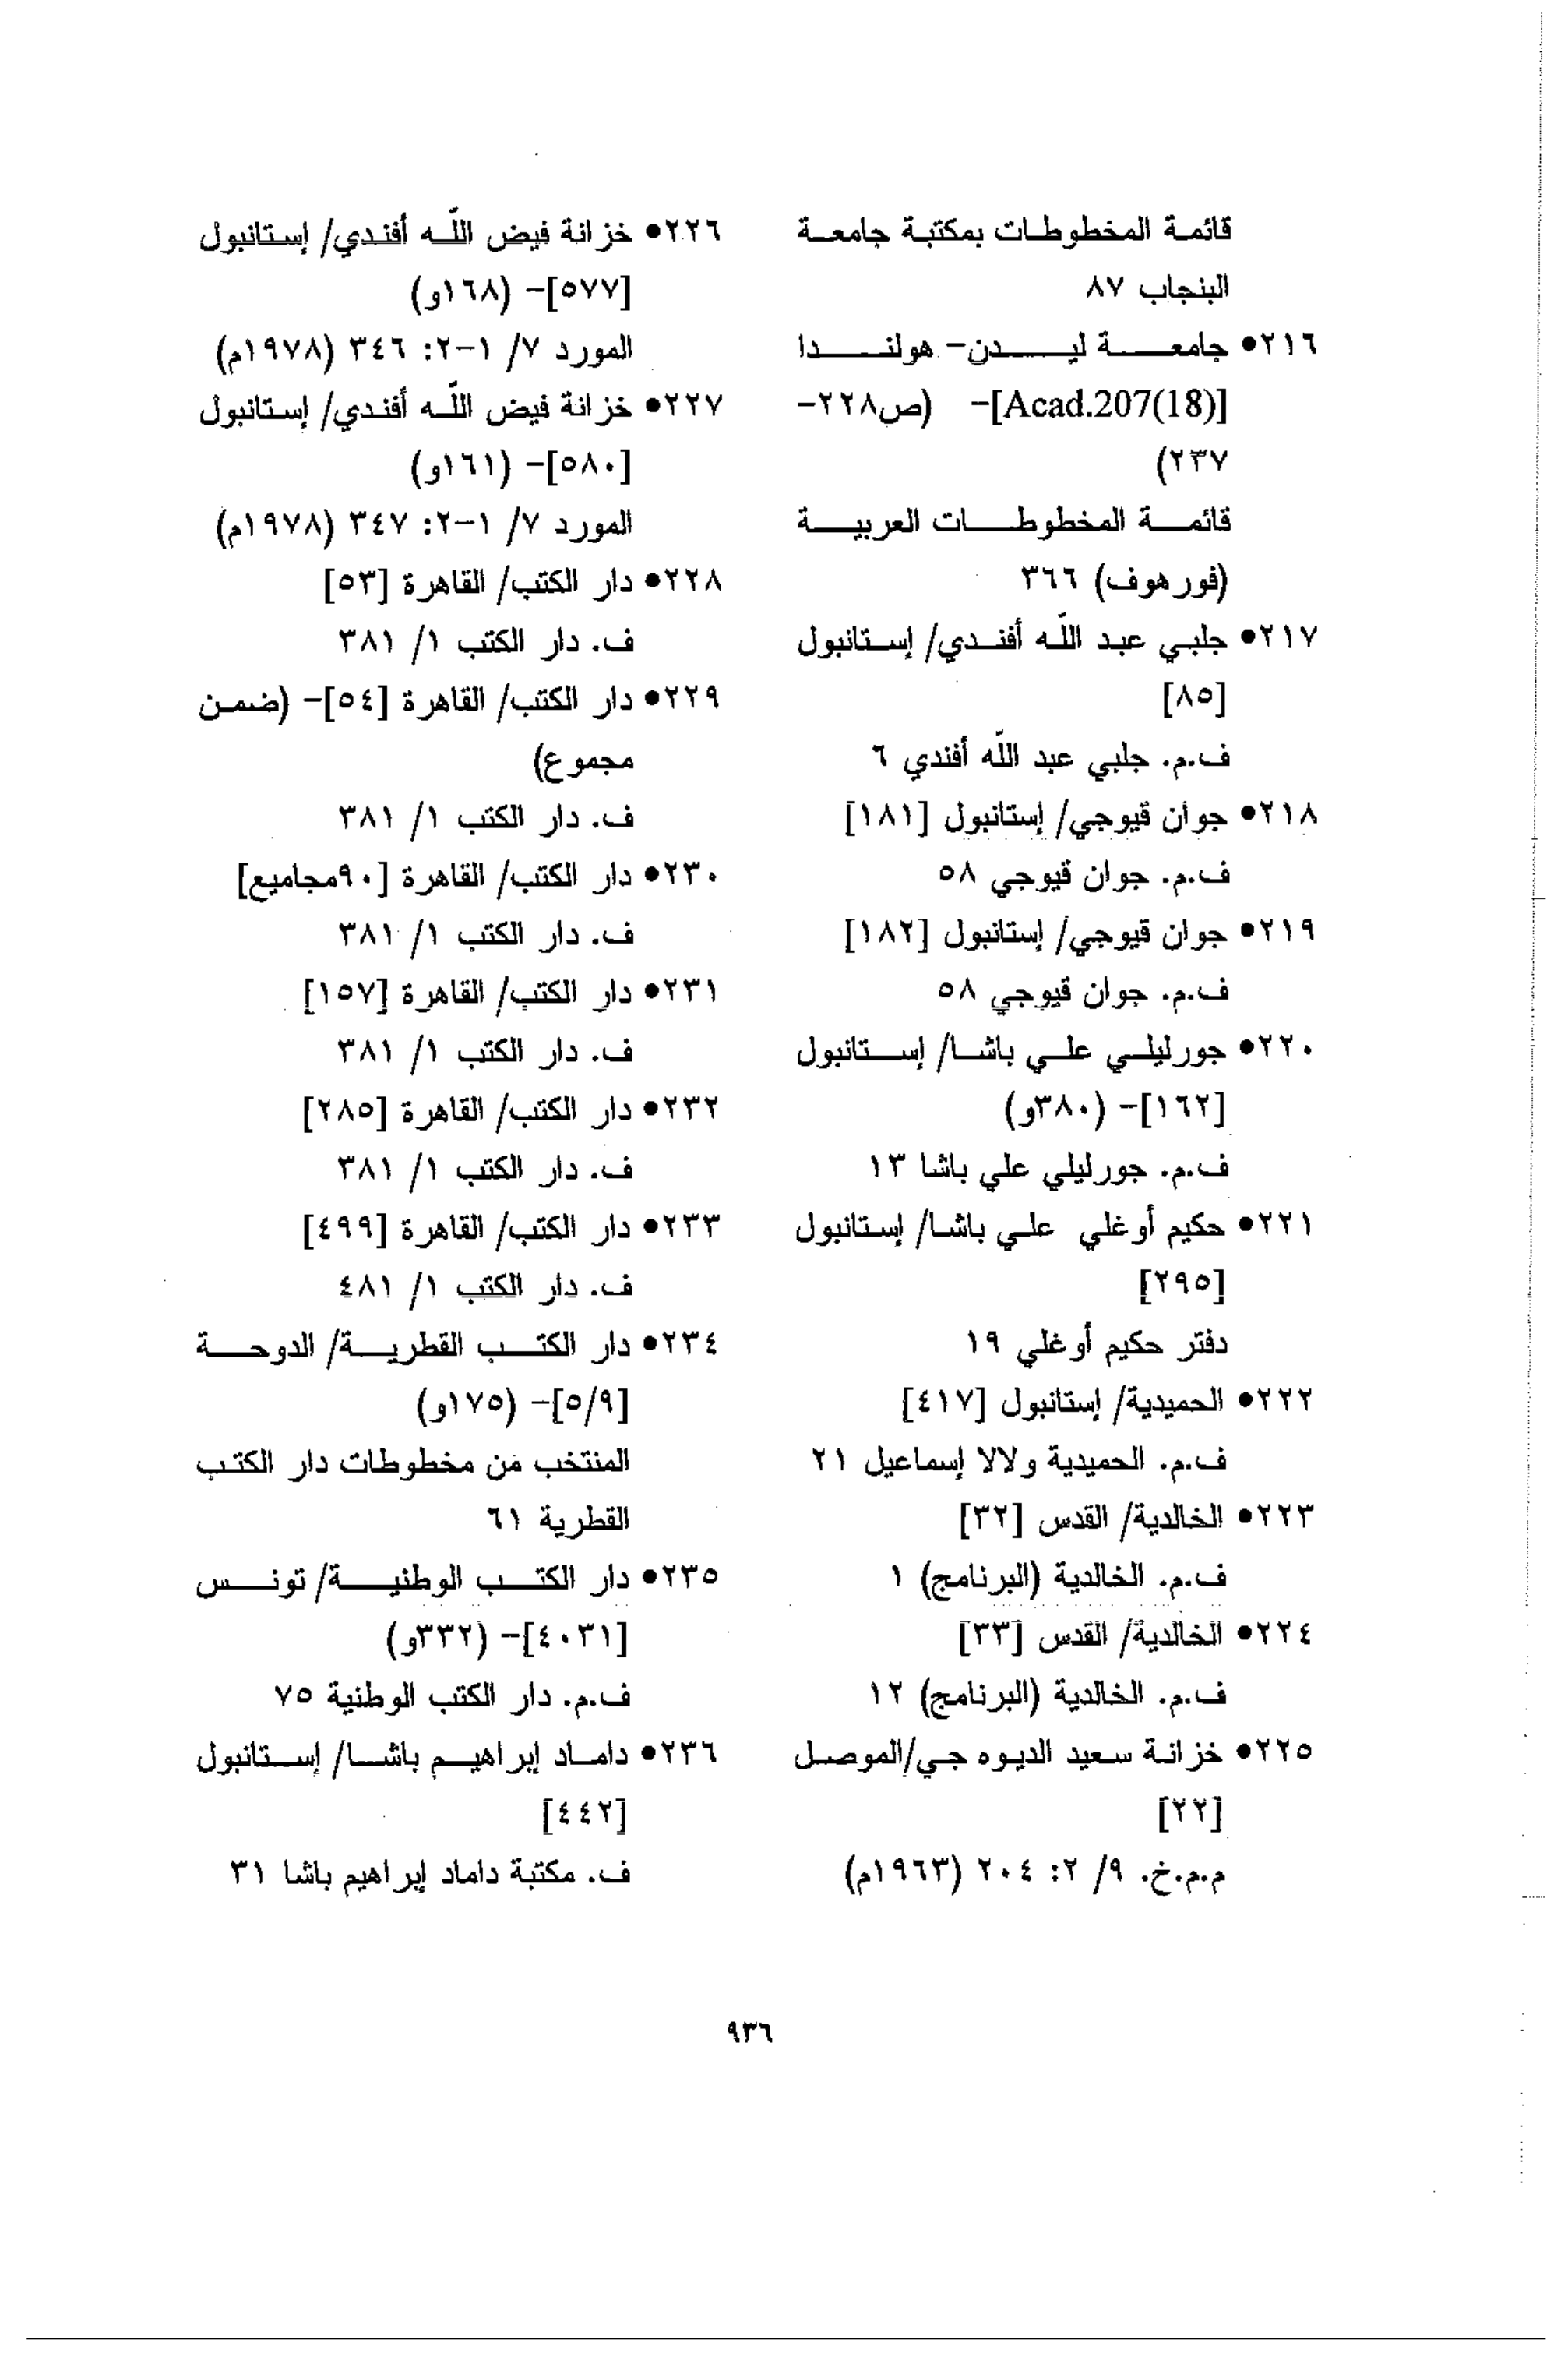 قائمة المخطوطات بمكتبة جامعة
البنجاب ٨٧
٢١٦• جامعة ليدن- هولندا
[Acad.207(18)]- (ص٢٢٨-
٢٣٧)
قائمة المخطوطات العربية
(فورهوف) ٣٦٦
٢١٧• جلبي عبد اللّه أفندي/ إستانبول
[٨٥]
ف.م. جلبي عبد اللّه أفندي ٦
٢١٨• جوان قيوجي/ إستانبول [١٨١]
ف.م. جوان قيوجي ٥٨
٢١٩• جوان قيوجي/ إستانبول [١٨٢]
ف.م. جوان قيوجي ٥٨
٢٢٠• جورليلي علي باشا/ إستانبول
[١٦٢]- (٣٨٠و)
ف.م. جورليلي علي باشا ١٣
٢٢١• حكيم أوغلي علي باشا/ إستانبول
[٢٩٥]
دفتر حكيم أوغلي ١٩
٢٢٢• الحميدية/ إستانبول [٤١٧]
ف.م. الحميدية ولالا إسماعيل ٢١
٢٢٣• الخالدية/ القدس [٣٢]
ف.م. الخالدية (البرنامج) ١
٢٢٤• الخالدية/ القدس [٣٣]
ف.م. الخالدية (البرنامج) ١٢
٢٢٥• خزانة سعيد الديوه جي/الموصل
[٢٢]
م.م.خ. ٩/ ٢: ٢٠٤ (١٩٦٣م)
٢٢٦• خزانة فيض اللّه أفندي/ إستانبول
[٥٧٧]- (١٦٨و)
المورد ٧/ ١-٢: ٣٤٦ (١٩٧٨م)
٢٢٧• خزانة فيض اللّه أفندي/ إستانبول
[٥٨٠]- (١٦١و)
المورد ٧/ ١-٢: ٣٤٧ (١٩٧٨م)
٢٢٨• دار الكتب/ القاهرة [٥٣]
ف. دار الكتب ١/ ٣٨١
٢٢٩• دار الكتب/ القاهرة [٥٤]- (ضمن
مجموع)
ف. دار الكتب ١/ ٣٨١
٢٣٠• دار الكتب/ القاهرة [٩٠مجاميع]
ف. دار الكتب ١/ ٣٨١
٢٣١• دار الكتب/ القاهرة [١٥٧]
ف. دار الكتب ١/ ٣٨١
٢٣٢• دار الكتب/ القاهرة [٢٨٥]
ف. دار الكتب ١/ ٣٨١
٢٣٣• دار الكتب/ القاهرة [٤٩٩]
ف. دار الكتب ١/ ٤٨١
٢٣٤• دار الكتب القطرية/ الدوحة
[٥/٩]- (١٧٥و)
المنتخب من مخطوطات دار الكتب
القطرية ٦١
٢٣٥• دار الكتب الوطنية/ تونس
[٤٠٣١]- (٣٣٢و)
ف.م. دار الكتب الوطنية ٧٥
٢٣٦• داماد إبراهيم باشا/ إستانبول
[٤٤٢]
ف. مكتبة داماد إبراهيم باشا ٣١
٩٣٦